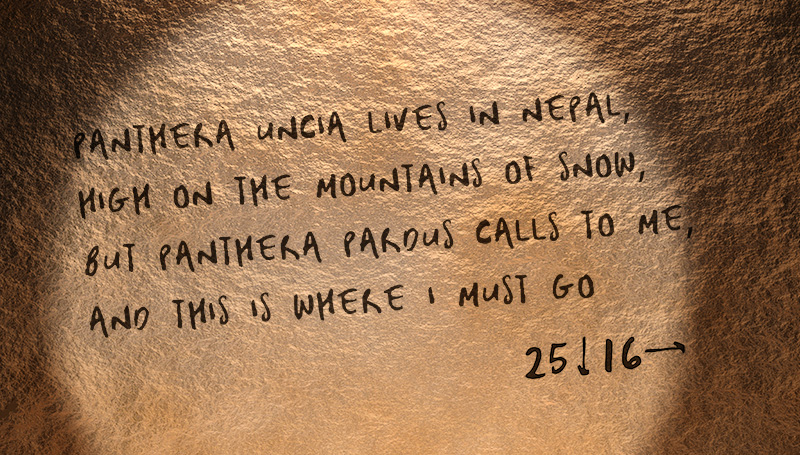 PANTHERA UNCIA LIVES IN NEPAL,
HIGH ON THE MOUNTAINS OF SNOW,
BUT PANTHERA PARDUS CALLS TO ME,
AND THIS IS WHERE I MUST GO
25↓16→